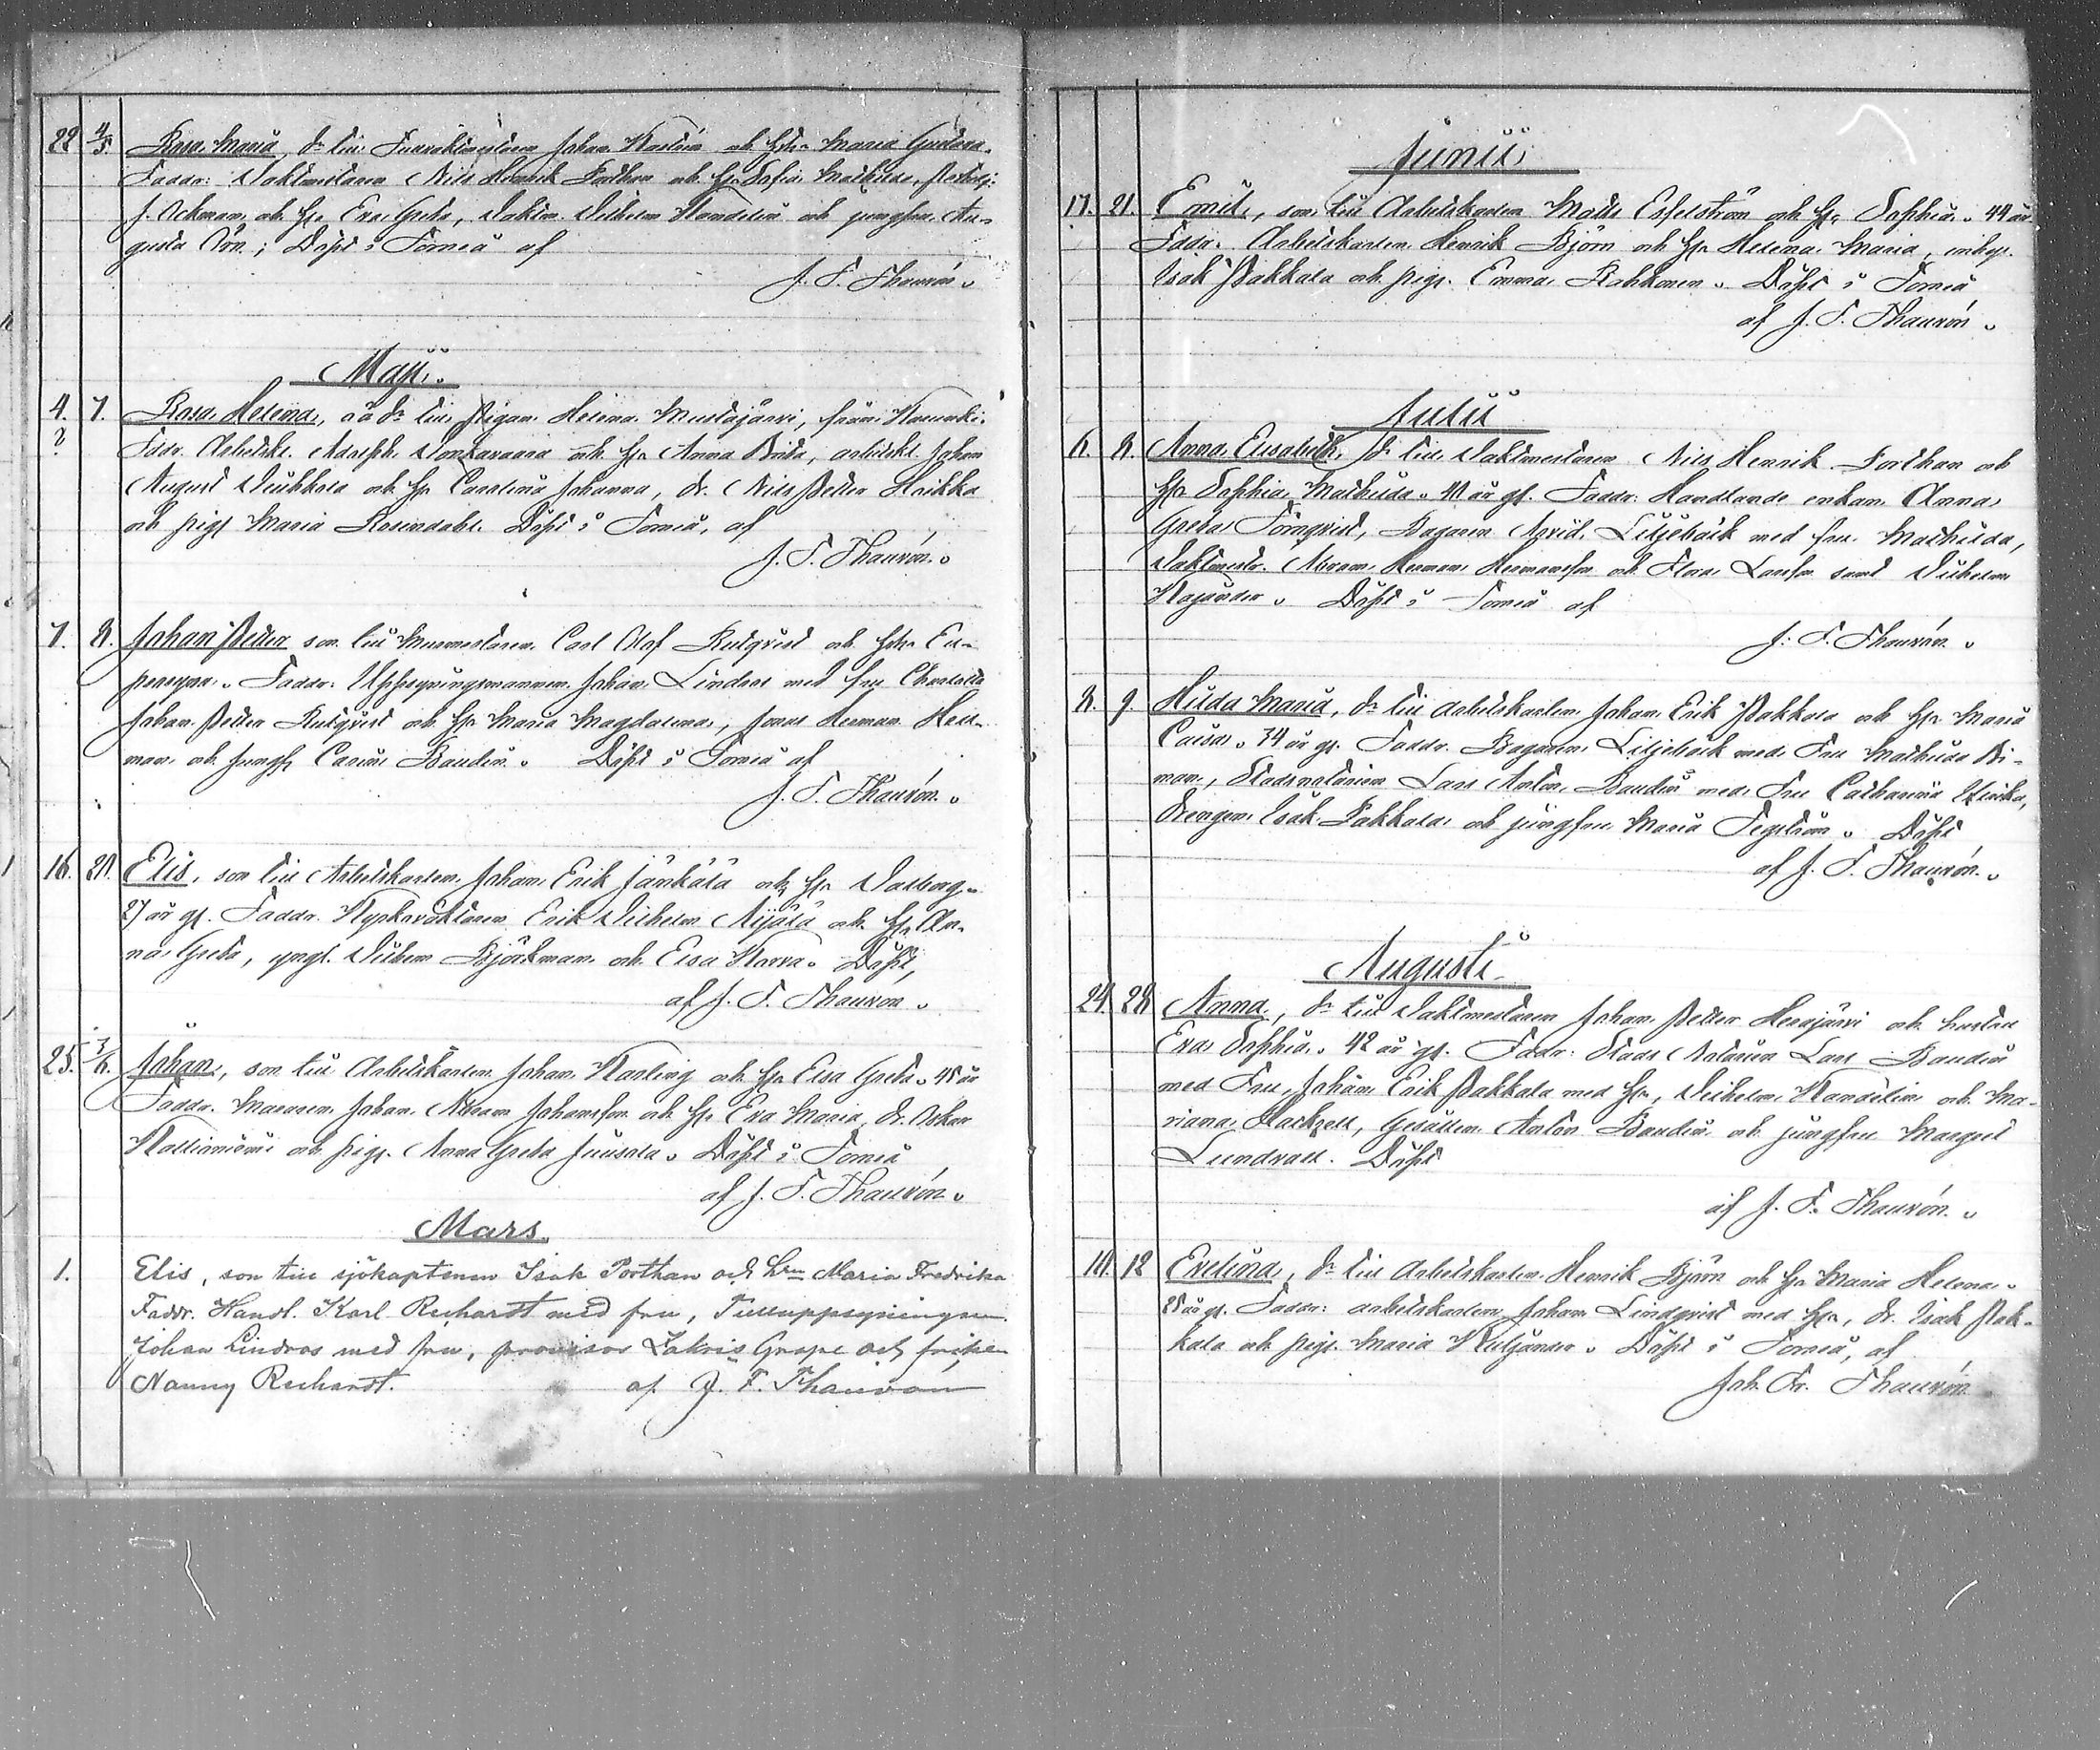 28 4/5. Rosa Maria, dr till Johan och hstr Maria
Faddr: Vaktmestaren Nils Henrik Porthan och hr Sofia Mathilda,
J. Ockman och hr Eva Greta, Vaktm. Vilhelm Wandelin och jungfru Au-
gusta Örn; Döpt i Torneå af
J. F. Thauvón.
Maji.
4. 7. Rosa Helena, oä dr till Pigan Helena Mustajärvi, från
? Fddr. Arbetsk. Adolph Vonkavaara och hr Anna Brita, arbetsk. Johan
August Viukkola och hr Carolina Johanna, dr. Nils Petter Heikka
och pigs Maria Rosendahl. Döpt i Torneå, af
J. F. Thauvón.
7. 8. Johan Petter son till Murmestaren Carl Olof Rutqvist och hstr Eu-
. Faddr: Uppsyningsmannen Johan Lindros med fru Charlotta
Johan Petter Rutqvist och hr Maria Magdalena, Jonas Herman Hell-
man och Jungfr Carin Baudin. Döpt i Torneå af
J. F. Thauvón.
16. 20. Elis, son till Arbetskarlen Johan Erik Jänkälä och hr Valborg.
27 år gl. Faddr. Kyrkoväktaren Erik Vilhelm Alijälä och hr An-
na Greta, yngl. Vilhem Björkman och Elsa Karra. Döpt,
af J. F. Thauvón.
25. 3/6. Johan, son till Arbetskarlen Johan Karling och hr Elsa Greta. 45 år
Faddr. Johan Abram Johansson och hr Eva Maria, dr. Oskar
Kallioniemi och pigs. Anna Greta Juusola. Döpt i Torneå
af J. F. Thauvón.
Mars.
1. Elis, son till sjökaptenen Isak Porthan och hrn Maria Fredrika
Faddr. Handl. Karl Reuhardt med fru, Tulluppsyningsm.
Johan Lindros med fru, provisor Zakris Grape och fröken
Nanny Reuhardt. af J. F. Thauvon
Junii
17. 21. Emil, son till Arbetskarlen Matts Esselström och hr Sophia. 44 år
Faddr. Arbetskarlen Henrik Björn och hr Helena Maria, inhys.
Isak Pakkala och pigs. Emma Rahkonen. Döpt i Torneå
af J. F. Thauvón.
Julii
6. 8. Anna Elisabeth, dr till Vaktmestaren Nils Henrik Porthan och
hr Sophia Mathilda. 41 år gl. Faddr: Handlande enkan Anna
Greta Törnqvist, Bagaren Arvid Liljebäck med fru Mathilda,
Vaktmestr. Abram Herman Hermansson och Flora Larsson samt Vilhelm
. Döpt i Torneå af
J. F. Thauvón.
8. 9. Hilda Maria, dr till arbetskarlen Johan Erik Pakkala och hr Maria
Caisa. 34 år gl. Faddr. Bagaren Liljebäck med Fru Mathilda
Stadsnotarien Lars Anton Baudin med Fru Catharina Ulrika,
drengen Isak Pakkala och jungfru Maria Tegström. Döpt
af J. F. Thauvón.
Augusti
24. 28 Anna, dr till Vaktmestaren Johan Petter Herajärvi och hustru
Eva Sophia. 42 år gl. Faddr: Stads Notarien Lars Baudin
med Fru, Johan Erik Pakkala med hr, Vilhelm Wandelin och Ma-
riana Hackzell, Gesällen Anton Baudin och jungfru Margret
Lundvall. Döpt
af J. F. Thauvón.
10. 12 Evelina, dr till Arbetskarlen Henrik Björn och hr Maria Helena.
25 år gl. Faddr: arbetskarlen Johan Lindqvist med hr, dr. Isak Pak-
kala och pigs. Maria . Döpt i Torneå, af
Joh. Fr. Thauvón